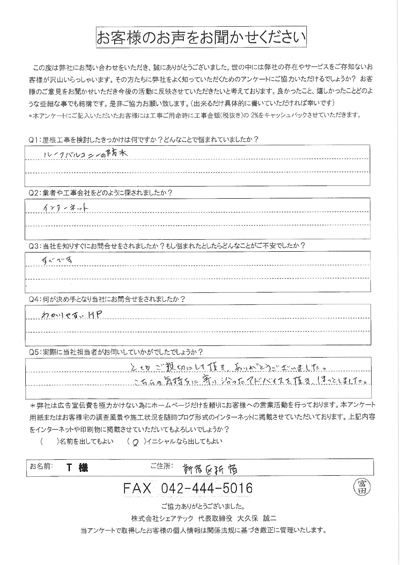 お客様のお声をお聞かせください
この度は弊社にお問い合わせをいただき、誠にありがとうございました。世の中には弊社の存在やサービスをご存知ないお
客様が沢山いらっしゃいます。その方たちに弊社をよく知っていただくためのアンケートにご協力いただけるでしょうか?お客
様のご意見をお聞かせいただき今後の活動に反映させていただきたいと考えております。良かったこと、嬉しかったことどのよ
うな些細な事でも結構です。是非ご協力お願い致します。(出来るだけ具体的に書いていただければ幸いです)
*本アンケートにご記入いただいたお客様には工事ご用命時に工事金額(税抜き)の2%をキャッシュバックさせていただきます。
Q1:屋根工事を検討したきっかけは何ですか?どんなことで悩まれていましたか?
ルーフバルコニーの防水
Q2:業者や工事会社をどのように探されましたか?
インターネット
Q3:当社を知りすぐにお問合せをされましたか?もし悩まれたとしたらどんなことがご不安でしたか?
すぐです
Q4:何が決め手となり当社にお問合せをされましたか?
わかりやすいHP
Q5:実際に当社担当者がお伺いしていかがでしたでしょうか?
とてもご親切にして頂き、ありがとうございました。
こちらの気持ちに寄り沿ったアドバイスを頂き、ほっとしました。
*弊社は広告宣伝費を極力かけない為にホームページだけを頼りにお客様への営業活動を行っております。本アンケート
用紙またはお客様宅の調査風景や施工状況を随時ブログ形式のインターネットに掲載させていただいております。上記内容
をインターネットや印刷物に掲載させていただいてもよろしいでしょうか?
( )名前を出してもよい (○)イニシャルなら出してもよい
お名前: T 様 ご住所: 新宿区新宿
FAX 042-444-5016
富田
ご協力ありがとうございました。
株式会社シェアテック 代表取締役 大久保 誠二
当アンケートで取得したお客様の個人情報は関係法規に基づき厳正に管理いたします。